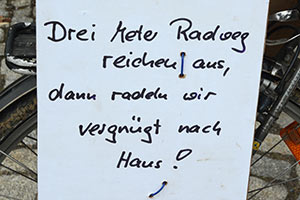 Drei Meter Radweg
reichen aus,
dann radeln wir
vergnügt nach
Haus!